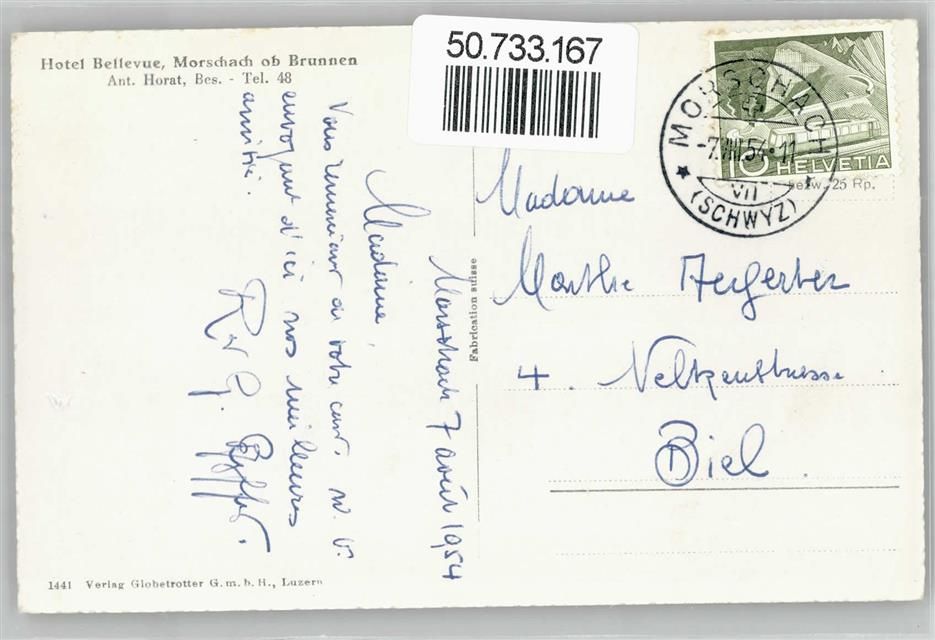 Hotel Bellevue, Morschach ob Brunnen
Ant. Horat, Bes. - Tel. 48
50.733.167
MORSCHACH
-7.VIII.54-11
VII
(SCHWYZ)
10 HELVETIA
bezw. 25 Rp.
Morschach 7 août 1954
Madame,
Vous
envoyant d'ici nos meilleures
amitié.
R et G.
Fabrication suisse
Madame
Marthe Aegerter
4. Nelkenstrasse
Biel
1441 Verlag Globetrotter G.m.b.H., Luzern